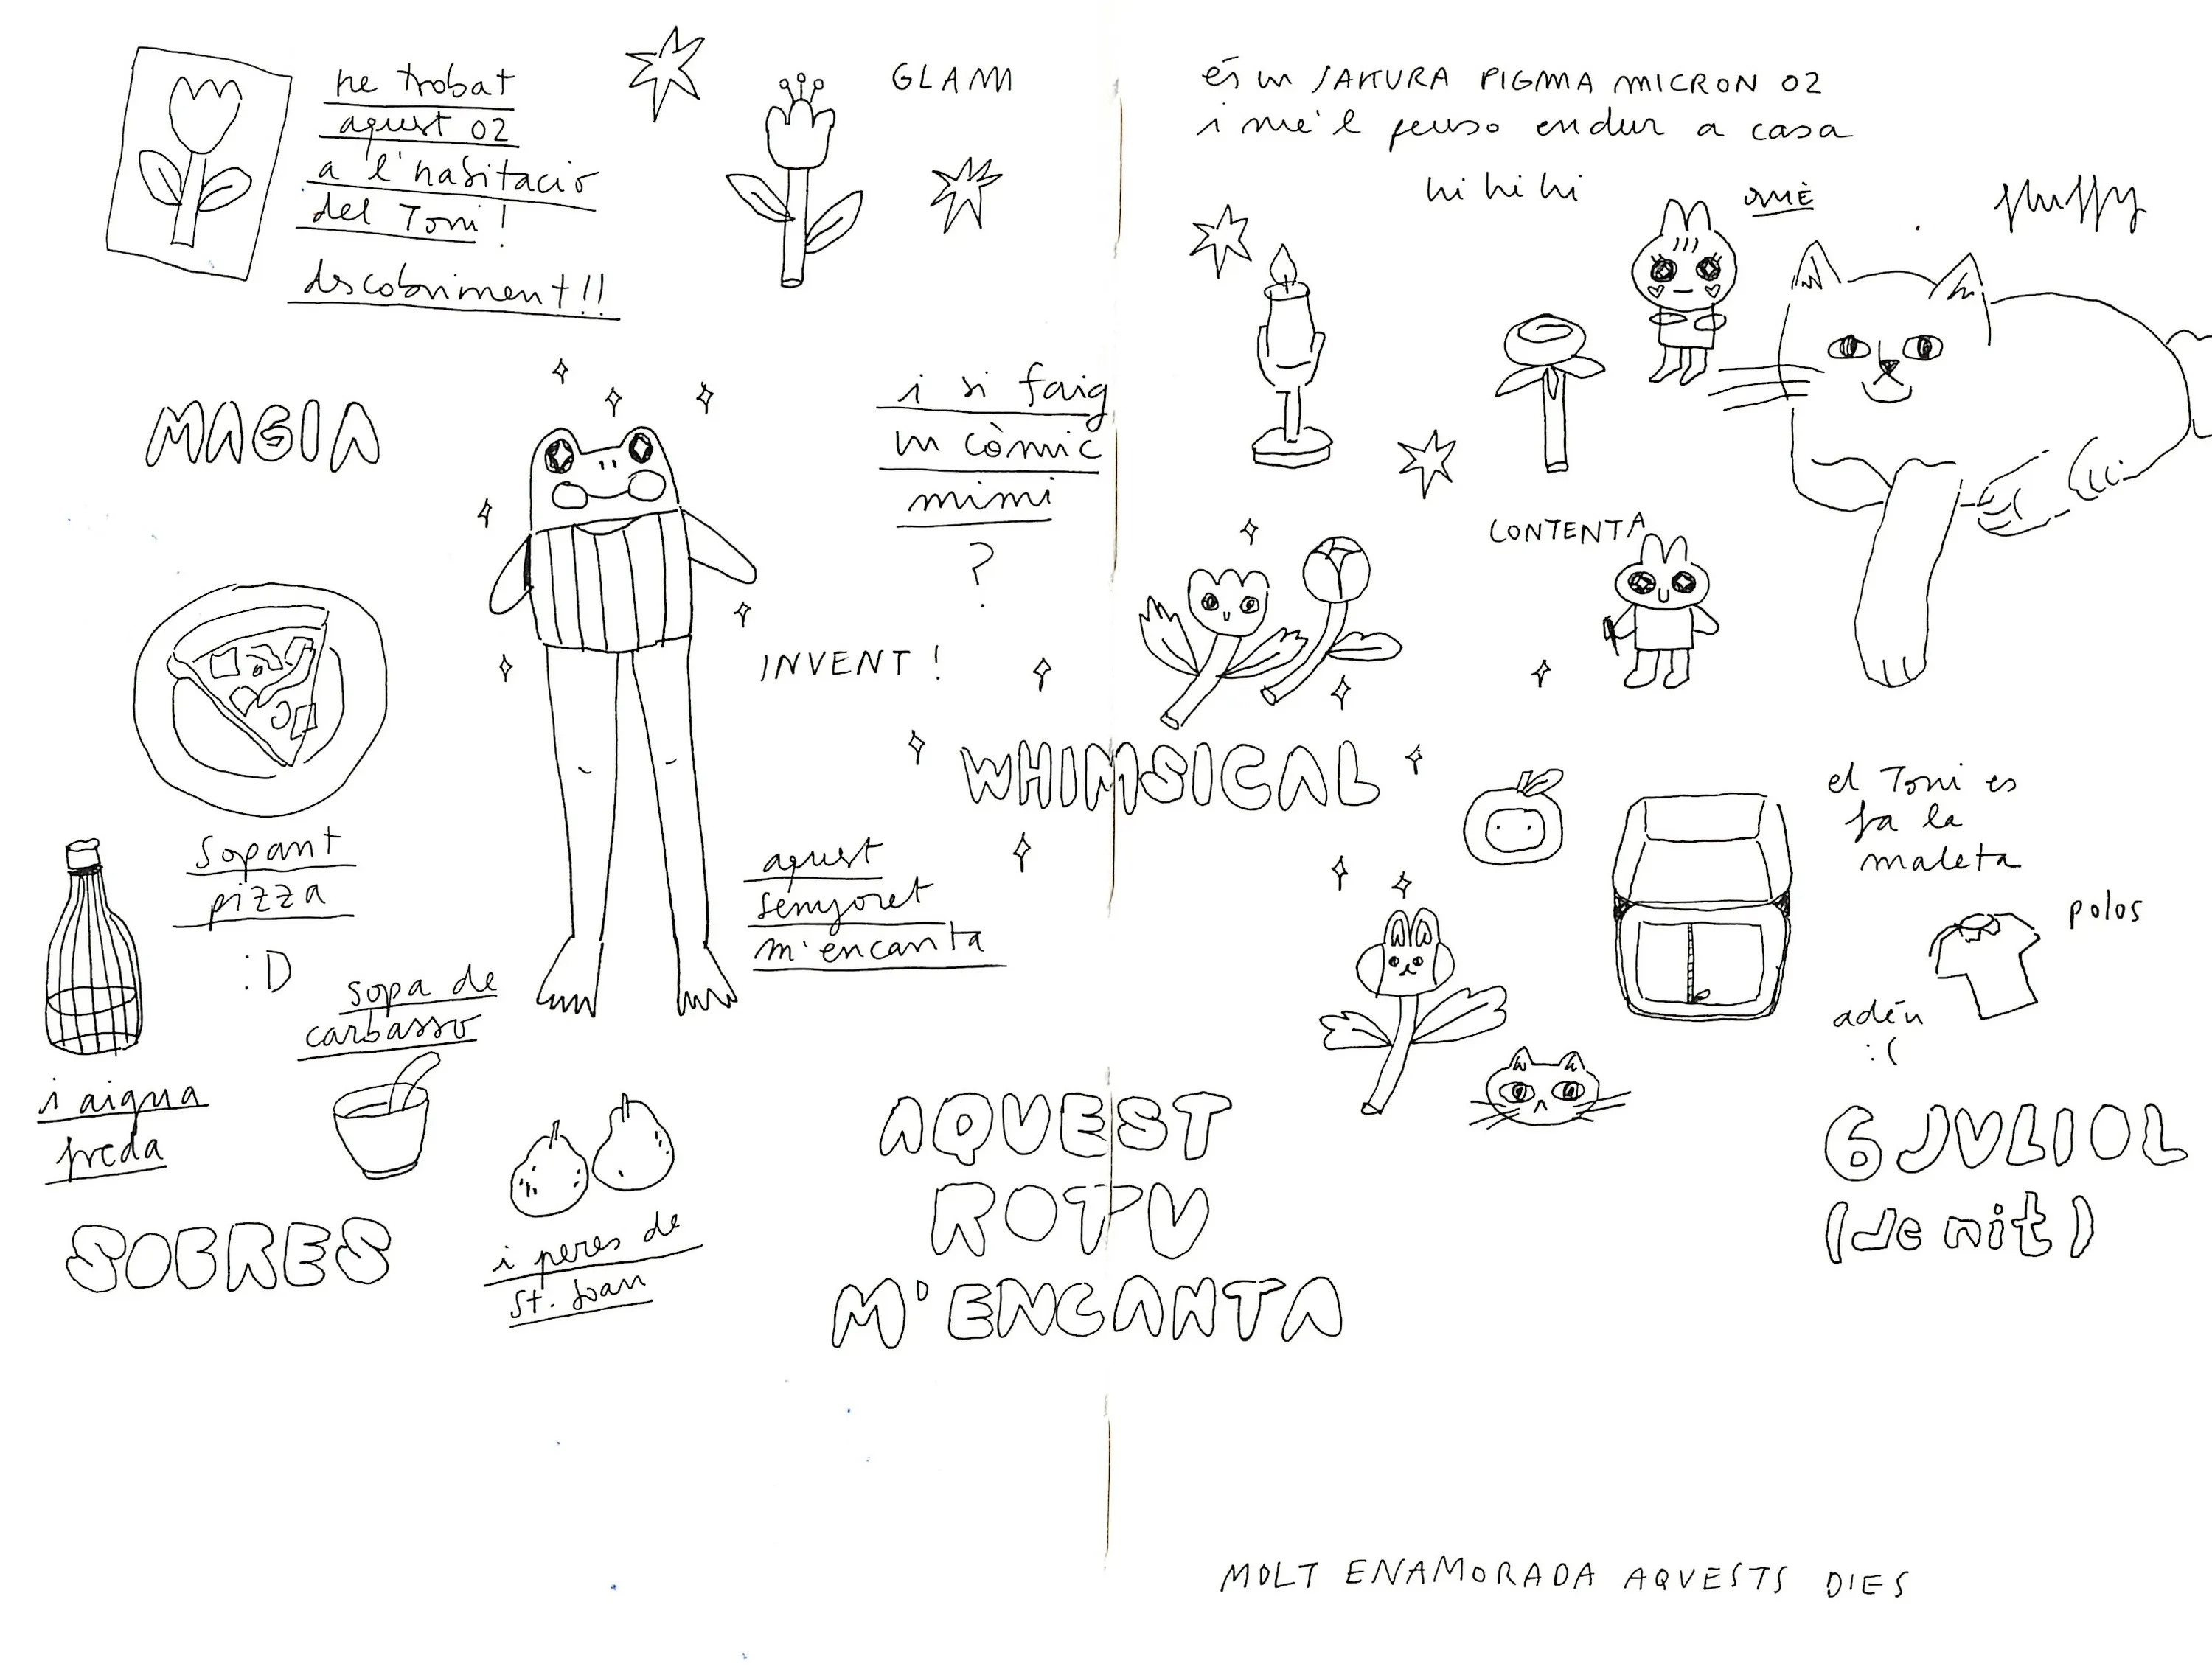 he trobat
aquest 02
a l'habitació
del Toni!
descobriment!!
GLAM
MAGIA
i si faig
un còmic
mimi
?
INVENT!
sopant
pizza
:D
aquest
senyoret
m'encanta
sopa de
carbassó
i aigua
freda
SOBRES
i peres de
St. Joan
WHIMSICAL
AQUEST
ROTU
M'ENCANTA
és un SAKURA PIGMA MICRON 02
i me'l penso endur a casa
hi hi hi
fluffy
CONTENTA
el Toni es
fa la
maleta
polos
adéu
:(
6 JULIOL
(de nit)
MOLT ENAMORADA AQUESTS DIES